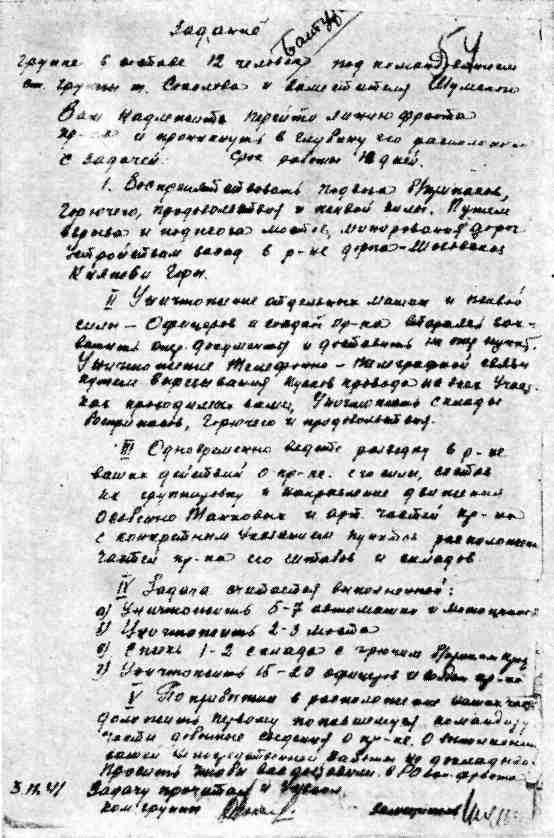 Задание
группе в составе 12 человек под командованием
ст. группы т. Соколова и заместителя Шумского
Вам надлежит перейти линию фронта
пр-ка и проникнуть в глубину его расположения
с задачей: Срок работы дней.
1. Воспрепятствовать подвоза боеприпасов,
горючего, продовольствия и живой силы. Путем
взрыва и поджога мостов, минирования дорог
устройством засад в р-не дорога – Шаховская
Княжьи Горы.
II Уничтожение отдельных машин и живой
силы – Офицеров и солдат пр-ка стараясь зах-
ватить опер. документы и доставить на
Уничтожение Телефонно – телеграфной связи
путем вырезывания кусков провода на всех участ-
ках проводимых вами, Уничтожить склады
боеприпасов, горючего и продовольствия.
III Одновременно ведете разведку в р-не
ваших действий о пр-ке. его силы, состав
их группировку и направление движения
Особенно Танковых и арт. частей пр-ка
с конкретным указанием пунктов расположения
частей пр-ка его штабов и складов
IV Задача считается выполненной:
а) Уничтожить 5-7 автомашин и мотоциклов
б) Уничтожить 2-3 моста
в) Сжечь 1-2 склада с горючим
г) Уничтожить 15-20 офицеров и пр-ка
V По прибытии в расположение наших частей
доложить первому попавшемуся командиру
части данные сведения о пр-ке. О выполнении
вашей непосредственной работы не докладывать.
Просить чтобы вас доставили в РО фронта
3.11.41 Задачу прочитал и уяснил
ком группы заместитель